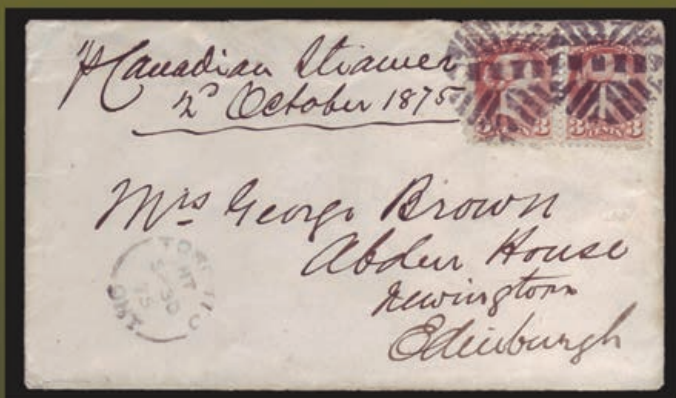 p Canadian Steamer
2d October 1875
3 CENTS 3
Mrs George Brown
Abden House
Newington
Edinburgh
TORONTO
SP 30
75
ONT